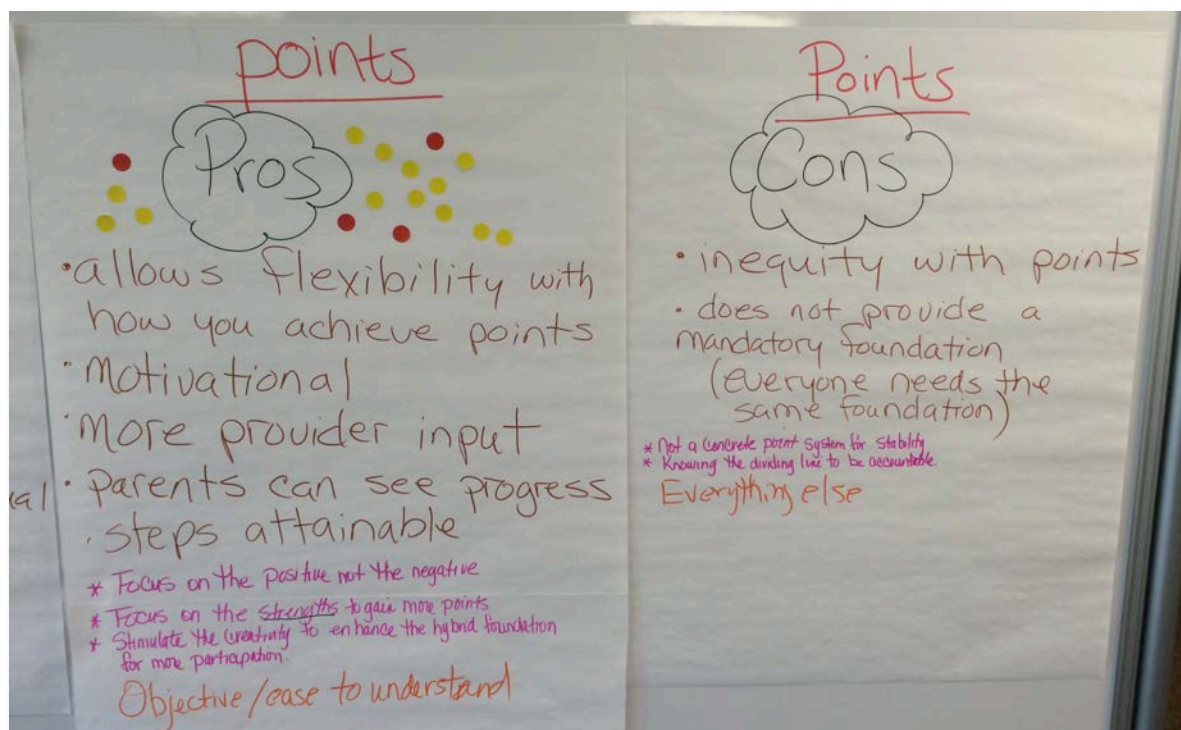 points
Pros
• allows flexibility with
how you achieve points
• Motivational
• More provider input
• parents can see progress
• steps attainable
* Focus on the positive not the negative
* Focus on the strengths to gain more points
* Stimulate the creativity to enhance the hybrid foundation
for more participation.
Objective/ease to understand
Points
Cons
• inequity with points
• does not provide a
mandatory foundation
(everyone needs the
same foundation)
* Not a concrete point system for stability
* Knowing the dividing line to be accountable.
Everything else